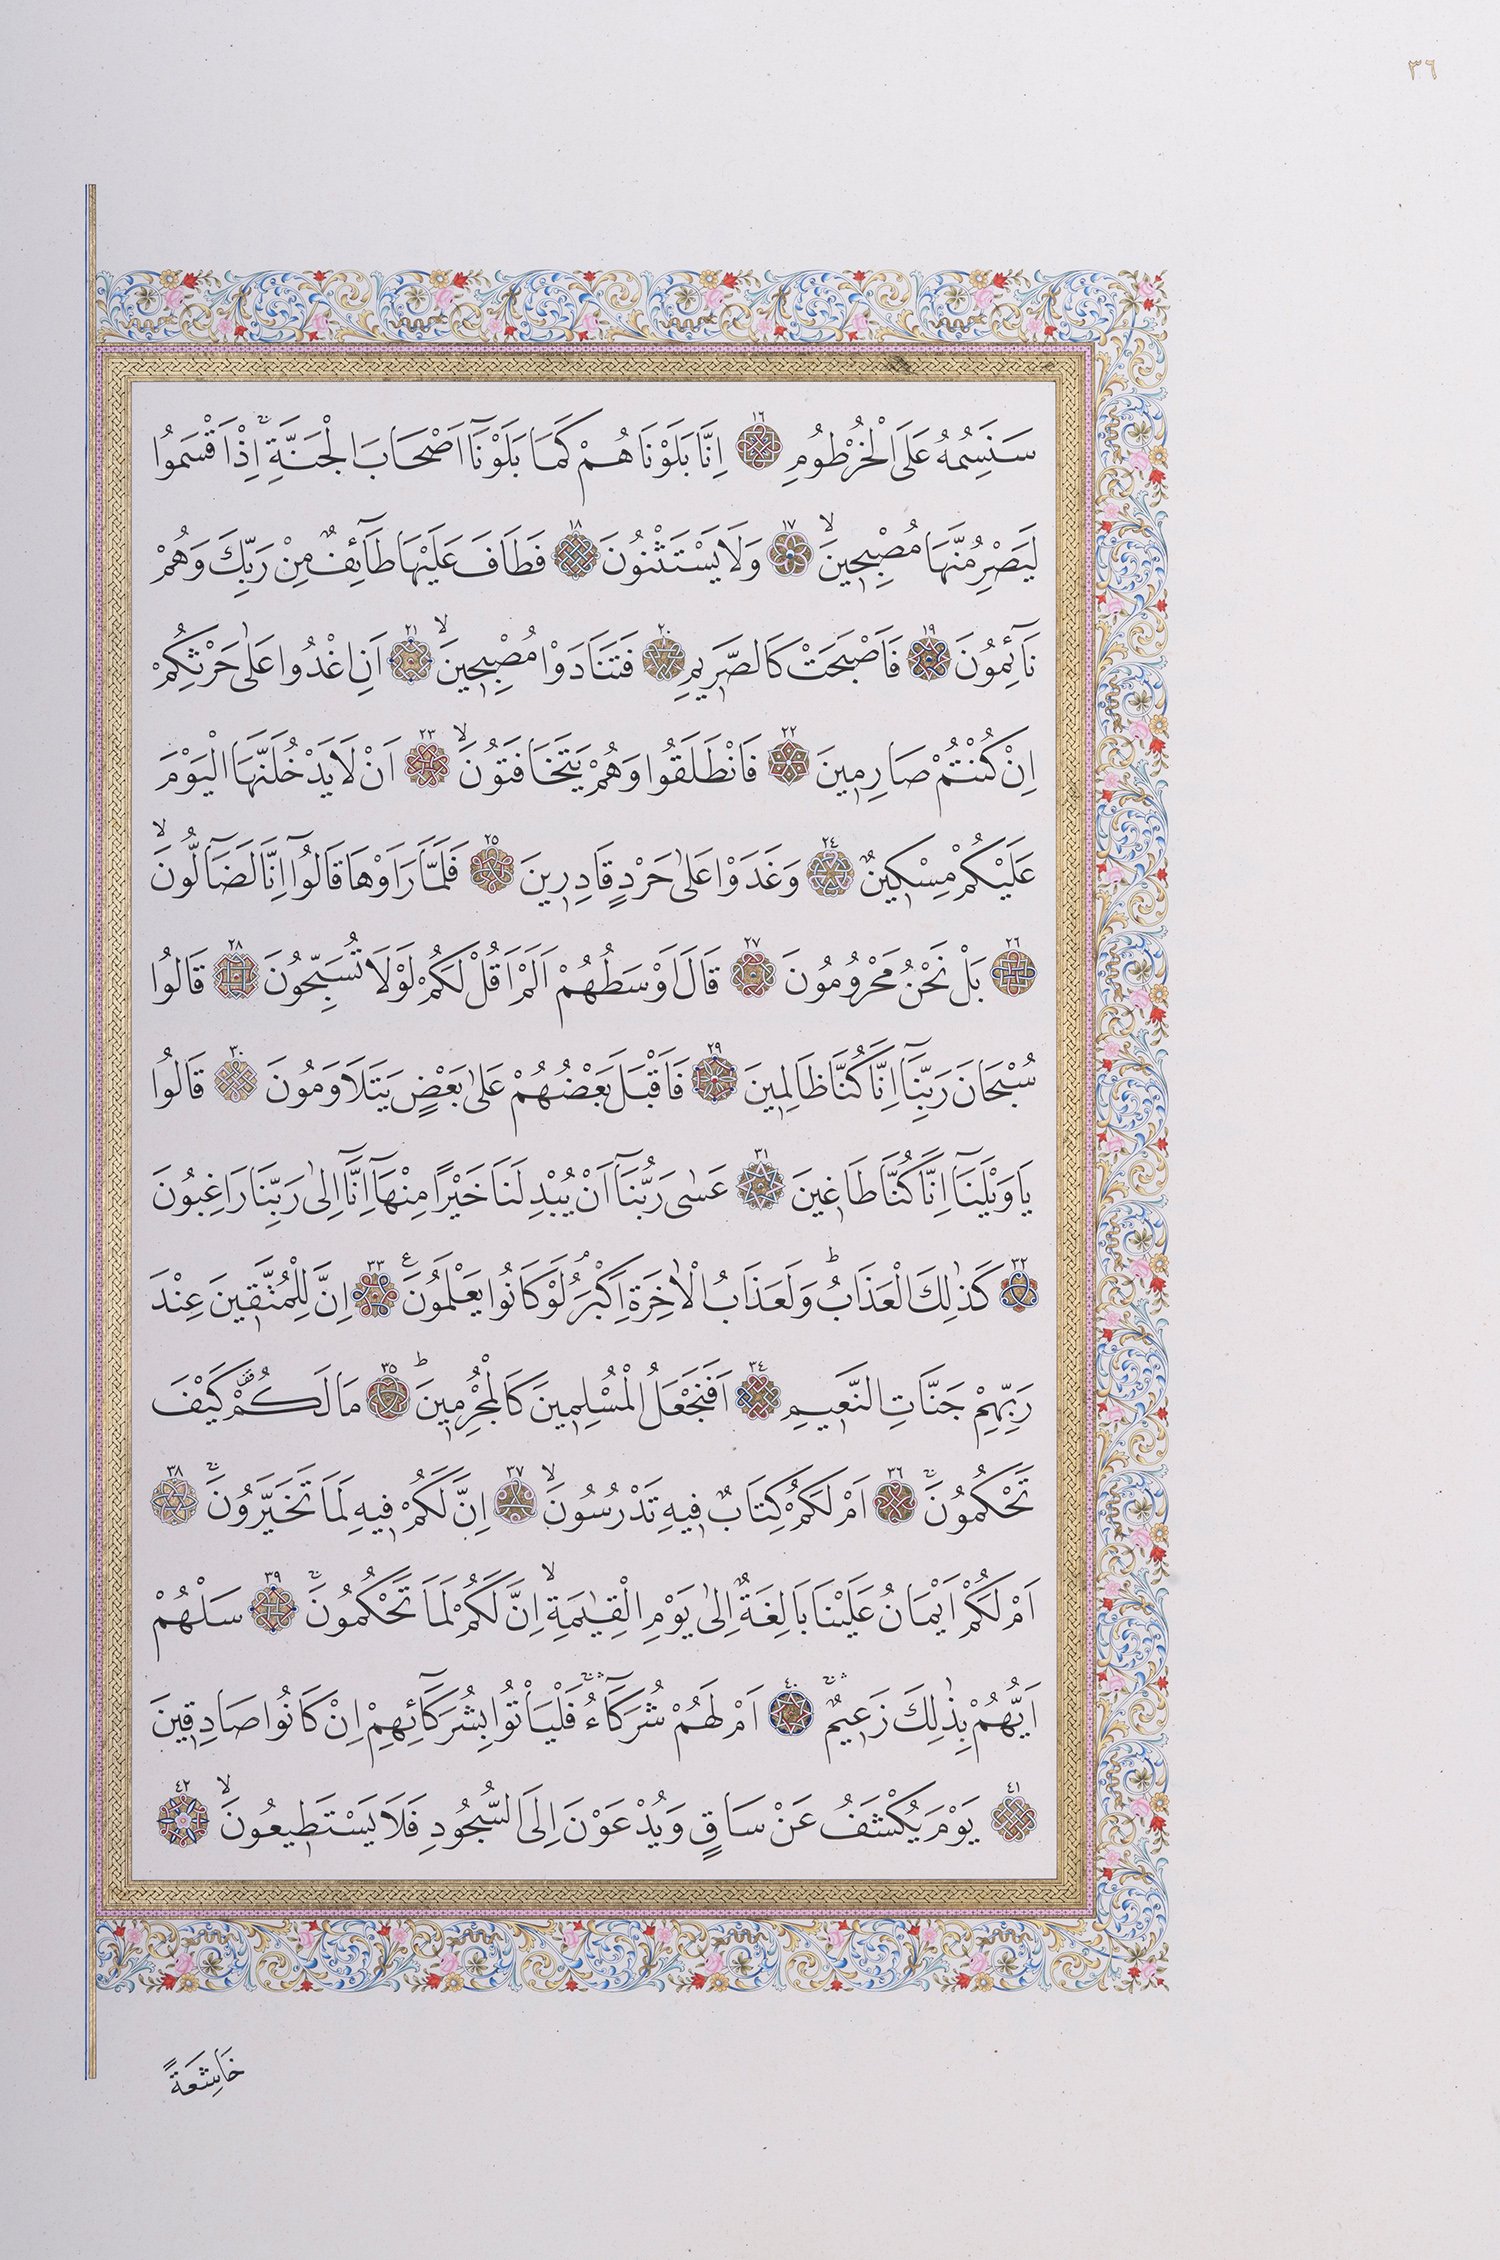 ٣٦
سَنَسِمُهُ عَلَى الْخُرْطُومِ ١٦ اِنَّا بَلَوْنَاهُمْ كَمَا بَلَوْنَٓا اَصْحَابَ الْجَنَّةِۚ اِذْ اَقْسَمُوا
لَيَصْرِمُنَّهَا مُصْبِحِينَۙ ١٧ وَلَا يَسْتَثْنُونَ ١٨ فَطَافَ عَلَيْهَا طَٓائِفٌ مِنْ رَبِّكَ وَهُمْ
نَٓائِمُونَ ١٩ فَاَصْبَحَتْ كَالصَّرِيمِ ٢٠ فَتَنَادَوْا مُصْبِحِينَۙ ٢١ اَنِ اغْدُوا عَلٰى حَرْثِكُمْ
اِنْ كُنْتُمْ صَارِمِينَ ٢٢ فَانْطَلَقُوا وَهُمْ يَتَخَافَتُونَۙ ٢٣ اَنْ لَا يَدْخُلَنَّهَا الْيَوْمَ
عَلَيْكُمْ مِسْكِينٌ ٢٤ وَغَدَوْا عَلٰى حَرْدٍ قَادِرِينَ ٢٥ فَلَمَّا رَاَوْهَا قَالُٓوا اِنَّا لَضَٓالُّونَۙ
٢٦ بَلْ نَحْنُ مَحْرُومُونَ ٢٧ قَالَ اَوْسَطُهُمْ اَلَمْ اَقُلْ لَكُمْ لَوْلَا تُسَبِّحُونَ ٢٨ قَالُوا
سُبْحَانَ رَبِّنَٓا اِنَّا كُنَّا ظَالِمِينَ ٢٩ فَاَقْبَلَ بَعْضُهُمْ عَلٰى بَعْضٍ يَتَلَاوَمُونَ ٣٠ قَالُوا
يَا وَيْلَنَٓا اِنَّا كُنَّا طَاغِينَ ٣١ عَسٰى رَبُّنَٓا اَنْ يُبْدِلَنَا خَيْرًا مِنْهَٓا اِنَّٓا اِلٰى رَبِّنَا رَاغِبُونَ
٣٢ كَذٰلِكَ الْعَذَابُؕ وَلَعَذَابُ الْاٰخِرَةِ اَكْبَرُۢ لَوْ كَانُوا يَعْلَمُونَ۟ ٣٣ اِنَّ لِلْمُتَّقِينَ عِنْدَ
رَبِّهِمْ جَنَّاتِ النَّعِيمِ ٣٤ اَفَنَجْعَلُ الْمُسْلِمِينَ كَالْمُجْرِمِينَؕ ٣٥ مَا لَكُمْ۠ كَيْفَ
تَحْكُمُونَۚ ٣٦ اَمْ لَكُمْ كِتَابٌ فِيهِ تَدْرُسُونَۙ ٣٧ اِنَّ لَكُمْ فِيهِ لَمَا تَخَيَّرُونَۚ ٣٨
اَمْ لَكُمْ اَيْمَانٌ عَلَيْنَا بَالِغَةٌ اِلٰى يَوْمِ الْقِيٰمَةِۙ اِنَّ لَكُمْ لَمَا تَحْكُمُونَۚ ٣٩ سَلْهُمْ
اَيُّهُمْ بِذٰلِكَ زَعِيمٌۚۛ ٤٠ اَمْ لَهُمْ شُرَكَٓاءُۚۛ فَلْيَأْتُوا بِشُرَكَٓائِهِمْ اِنْ كَانُوا صَادِقِينَ
٤١ يَوْمَ يُكْشَفُ عَنْ سَاقٍ وَيُدْعَوْنَ اِلَى السُّجُودِ فَلَا يَسْتَطِيعُونَۙ ٤٢
خَاشِعَةً